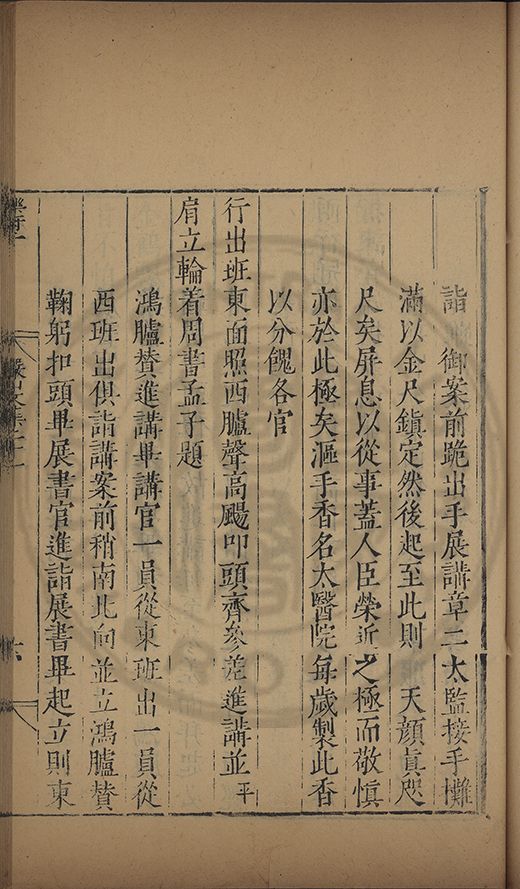 詣　御案前跪出手展講章二太監接手攤
滿以金尺鎮定然後起至此則　天顏眞咫
尺矣屏息以從事蓋人臣榮近之極而敬慎
亦於此極矣漚手香名太醫院每歲製此香
以分餽各官
行出班東面照西臚聲高颺叩頭齊參差進講並平
肩立輪着周書孟子題
鴻臚贊進講畢講官一員從東班出一員從
西班出俱詣講案前稍南北向並立鴻臚贊
鞠躬扣頭畢展書官進詣展書畢起立則東